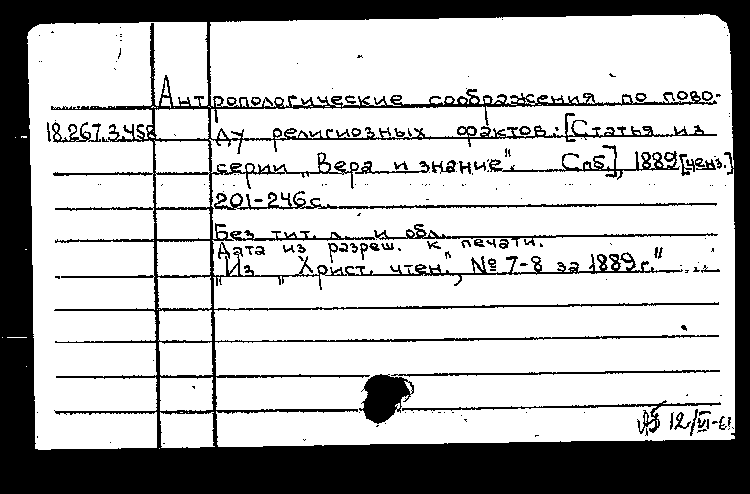 Антропологические соображения по пово-
18.267.3.458 ду религиозных фактов: [Статья из
серии „Вера и знание". Спб.], 1889 [ценз.]
201-246 с.
Без тит. л. и обл.
Дата из разреш. к печати.
"Из „Христ. чтен.", № 7-8 за 1889 г."
12/VI-61